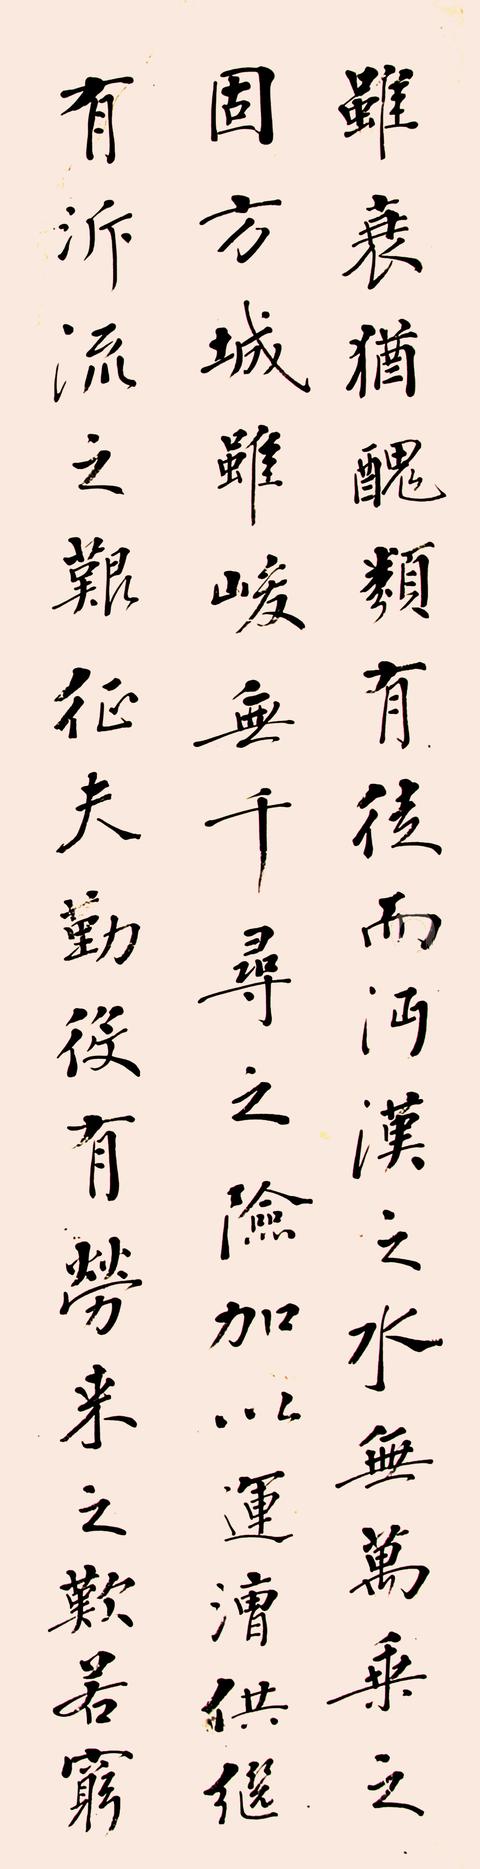 雖衰猶醜類有徒而沔漢之水無萬乘之
固方城雖峻無千尋之險加以運漕供繼
有泝流之艱征夫勤役有勞来之歎若窮